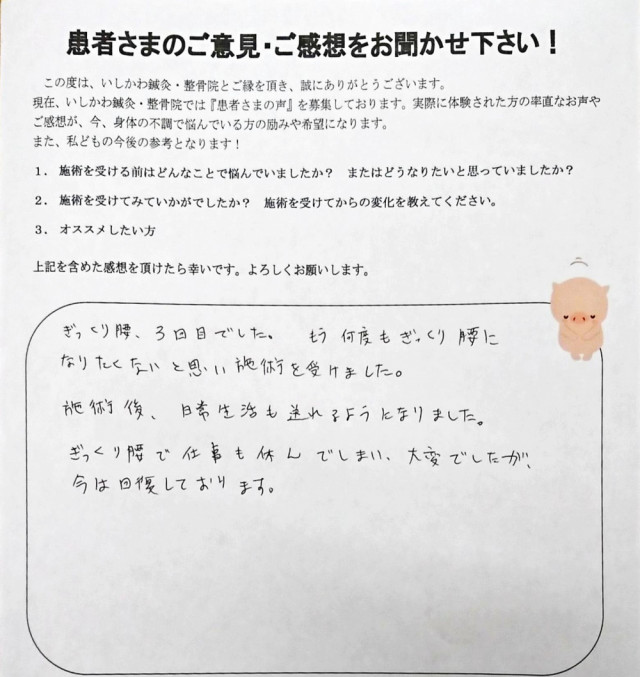 患者さまのご意見・ご感想をお聞かせ下さい！
この度は、いしかわ鍼灸・整骨院とご縁を頂き、誠にありがとうございます。
現在、いしかわ鍼灸・整骨院では『患者さまの声』を募集しております。実際に体験された方の率直なお声や
ご感想が、今、身体の不調で悩んでいる方の励みや希望になります。
また、私どもの今後の参考となります！
1．施術を受ける前はどんなことで悩んでいましたか？　またはどうなりたいと思っていましたか？
2．施術を受けてみていかがでしたか？　施術を受けてからの変化を教えてください。
3．オススメしたい方
上記を含めた感想を頂けたら幸いです。よろしくお願いします。
ぎっくり腰、3日目でした。　もう何度もぎっくり腰に
なりたくないと思い施術を受けました。
施術後、日常生活も送れるようになりました。
ぎっくり腰で仕事も休んでしまい、大変でしたが、
今は回復しております。